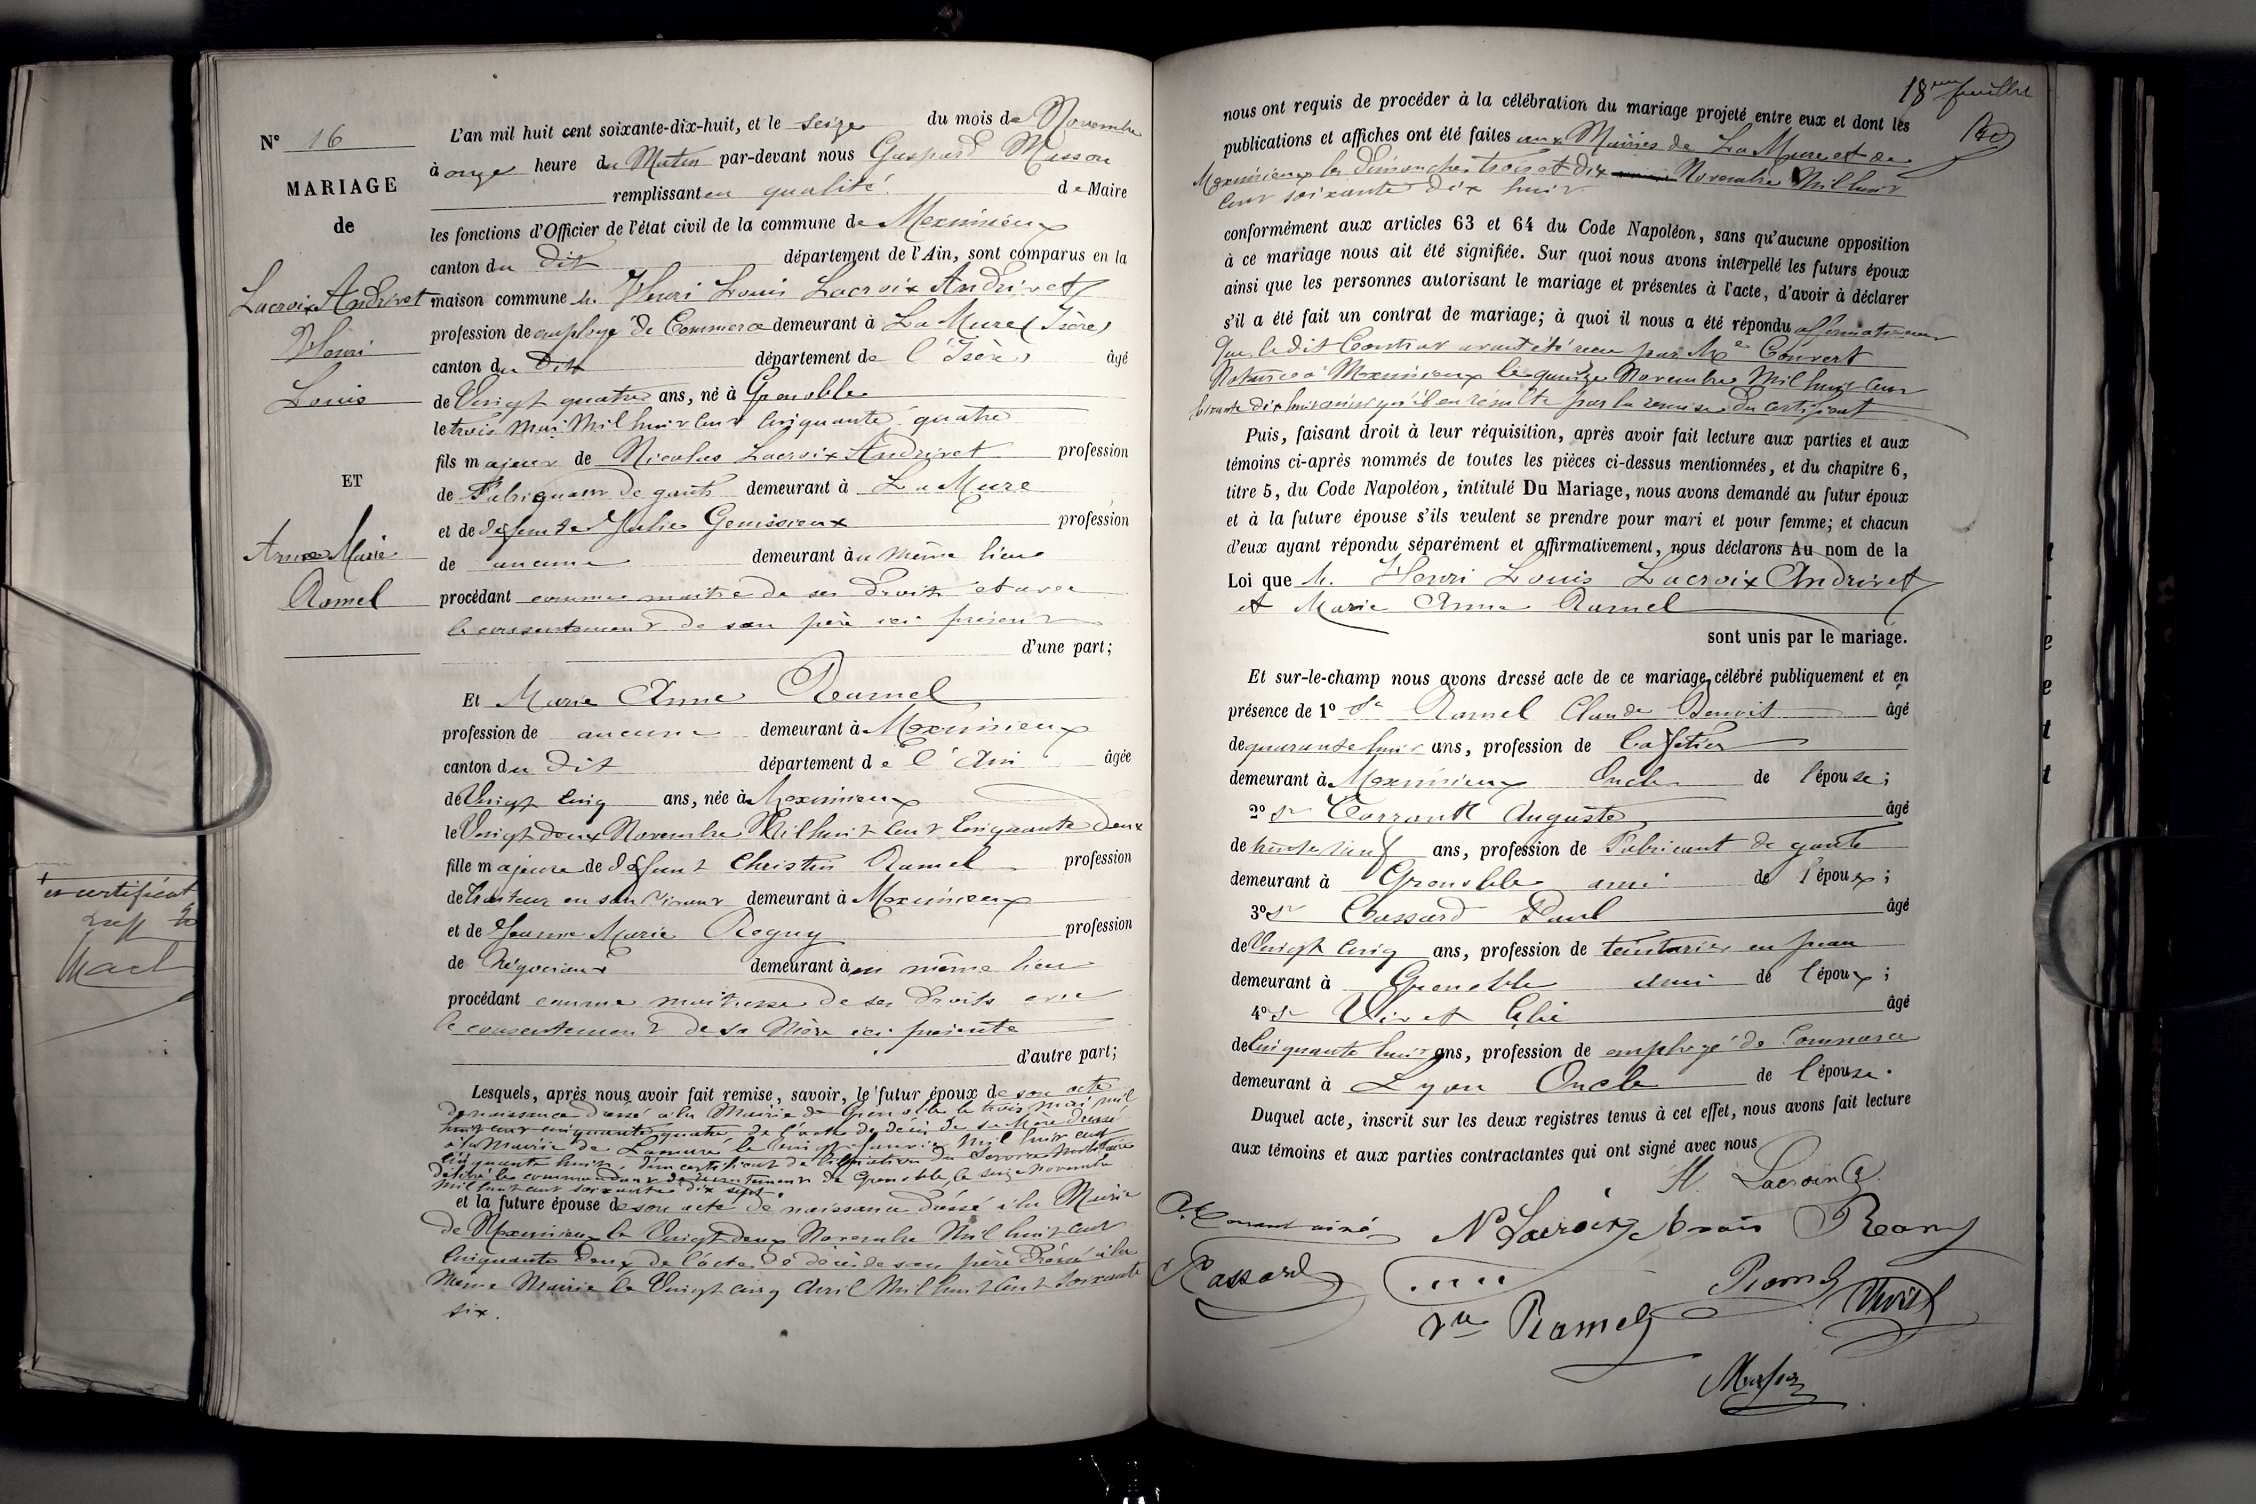 N° 16
MARIAGE
de
Lacroix Andrivet
Henri
Louis
ET
Anne Marie
Ramel
L'an mil huit cent soixante-dix-huit, et le seize du mois de Novembre
à onze heure du Matin par-devant nous Gaspard Masson
remplissant en qualité de Maire
les fonctions d'Officier de l'état civil de la commune de Meximieux
canton du dit département de l'Ain, sont comparus en la
maison commune M. Henri Louis Lacroix Andrivet
profession de employé de Commerce demeurant à La Mure (Isère)
canton du Dit département de l'Isère âgé
de Vingt quatre ans, né à Grenoble
le trois Mai Mil huit cent cinquante quatre
fils majeur de Nicolas Lacroix Andrivet profession
de Fabriquant de gants demeurant à La Mure
et de défunte Julie Genissieux profession
de aucune demeurant au même lieu
procédant comme maitre de ses droits et avec
le consentement de son père ici présent
d'une part;
Et Marie Anne Ramel
profession de aucune demeurant à Meximieux
canton du dit département de l'Ain âgée
de Vingt cinq ans, née à Meximieux
le Vingt deux Novembre Mil huit cent cinquante deux
fille majeure de défunt Christin Ramel profession
de traiteur en son vivant demeurant à Meximieux
et de Jeanne Marie Roguy profession
de Négociant demeurant au même lieu
procédant comme maitresse de ses droits avec
le consentement de sa Mère ici présente
d'autre part;
Lesquels, après nous avoir fait remise, savoir, le futur époux de son acte
de naissance dressé à la Mairie de Grenoble le trois mai mil
huit cent cinquante quatre, de l'acte de décès de sa Mère dressé
à la Mairie de Lamure le Vingt Janvier Mil huit cent
cinquante huit, d'un certificat de libération du Service Militaire
délivré le commandant de recrutement de Grenoble, le seize novembre
mil huit cent soixante dix sept.
et la future épouse de son acte de naissance dressé à la Mairie
de Meximieux le Vingt deux Novembre Mil huit cent
Cinquante deux de l'acte de décès de son père dressé à la
même Mairie le Vingt cinq Avril Mil huit cent soixante
six.
18me feuillet
nous ont requis de procéder à la célébration du mariage projeté entre eux et dont les
publications et affiches ont été faites aux Mairies de La Mure et de
Meximieux les Dimanches trois et dix Novembre Mil huit
cent soixante dix huit
conformément aux articles 63 et 64 du Code Napoléon, sans qu'aucune opposition
à ce mariage nous ait été signifiée. Sur quoi nous avons interpellé les futurs époux
ainsi que les personnes autorisant le mariage et présentes à l'acte, d'avoir à déclarer
s'il a été fait un contrat de mariage; à quoi il nous a été répondu affirmativement
que ledit Contrat avait été reçu par Me Convert
Notaire à Meximieux le quinze Novembre Mil huit cent
soixante dix huit ainsi qu'il en résulte par la remise du certificat
Puis, faisant droit à leur réquisition, après avoir fait lecture aux parties et aux
témoins ci-après nommés de toutes les pièces ci-dessus mentionnées, et du chapitre 6,
titre 5, du Code Napoléon, intitulé Du Mariage, nous avons demandé au futur époux
et à la future épouse s'ils veulent se prendre pour mari et pour femme; et chacun
d'eux ayant répondu séparément et affirmativement, nous déclarons Au nom de la
Loi que M. Henri Louis Lacroix Andrivet
et Marie Anne Ramel
sont unis par le mariage.
Et sur-le-champ nous avons dressé acte de ce mariage célébré publiquement et en
présence de 1° Sr Ramel Claude Benoit âgé
de quarante huit ans, profession de Cafetier
demeurant à Meximieux Oncle de l'épouse;
2° Sr Auguste âgé
de trente neuf ans, profession de Fabricant de gants
demeurant à Grenoble ami de l'époux;
3° Sr Cassard Paul âgé
de Vingt cinq ans, profession de teinturier en peau
demeurant à Grenoble ami de l'époux;
4° Sr Viret Elie âgé
de Cinquante huit ans, profession de employé de Commerce
demeurant à Lyon Oncle de l'épouse.
Duquel acte, inscrit sur les deux registres tenus à cet effet, nous avons fait lecture
aux témoins et aux parties contractantes qui ont signé avec nous
H. Lacroix A.
N Lacroix
Cassard
Ramel
Viret
Vve Ramel
Masson